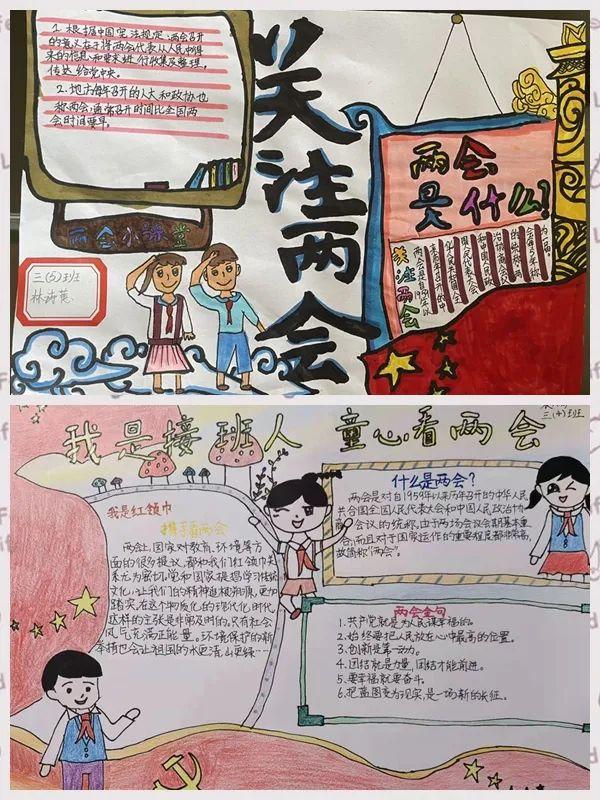 1. 根据中国宪法规定,两会召开
的意义在于将两会代表从人民中得
来的信息和要求进行收集及整理,
传达给党中央。
2. 地方每年召开的人大和政协也
称两会,通常召开的时间比全国两
会时间要早。
两会小课堂
三(5)班
林诗
关注两会
两会
是什么?
关注两会
两会是自1959年以
人民共和国
国人民代表大会
和中国人民政
治协商会议
的统称
我是接班人 童心看两会
三(4)班
我是红领巾
携手看两会
两会上,国家对教育、环境等方
面的很多提议,都和我们红领巾关
系尤为密切。党和国家提倡学习传统
文化,让我们的精神追根溯源,更加
踏实。在这个物质化的现代化时代
这样的主张是非常及时的。只有社会
风气充满正能量。环境保护的新
举措也会让祖国的水更清,山更绿…
什么是两会?
两会是对自1959年以来历年召开的中华人民
共和国全国人民代表大会和中国人民政治协
商会议的统称。由于两场会议会期基本重
合,而且对于国家运作的重要程度都非常高,
故简称"两会"。
两会金句
1. 共产党就是为人民谋幸福的。
2. 始终要把人民放在心中最高的位置。
3. 创新是第一动力。
4. 团结就是力量,团结才能前进。
5. 要幸福就要奋斗。
6. 把蓝图变为现实,是一场新的长征。